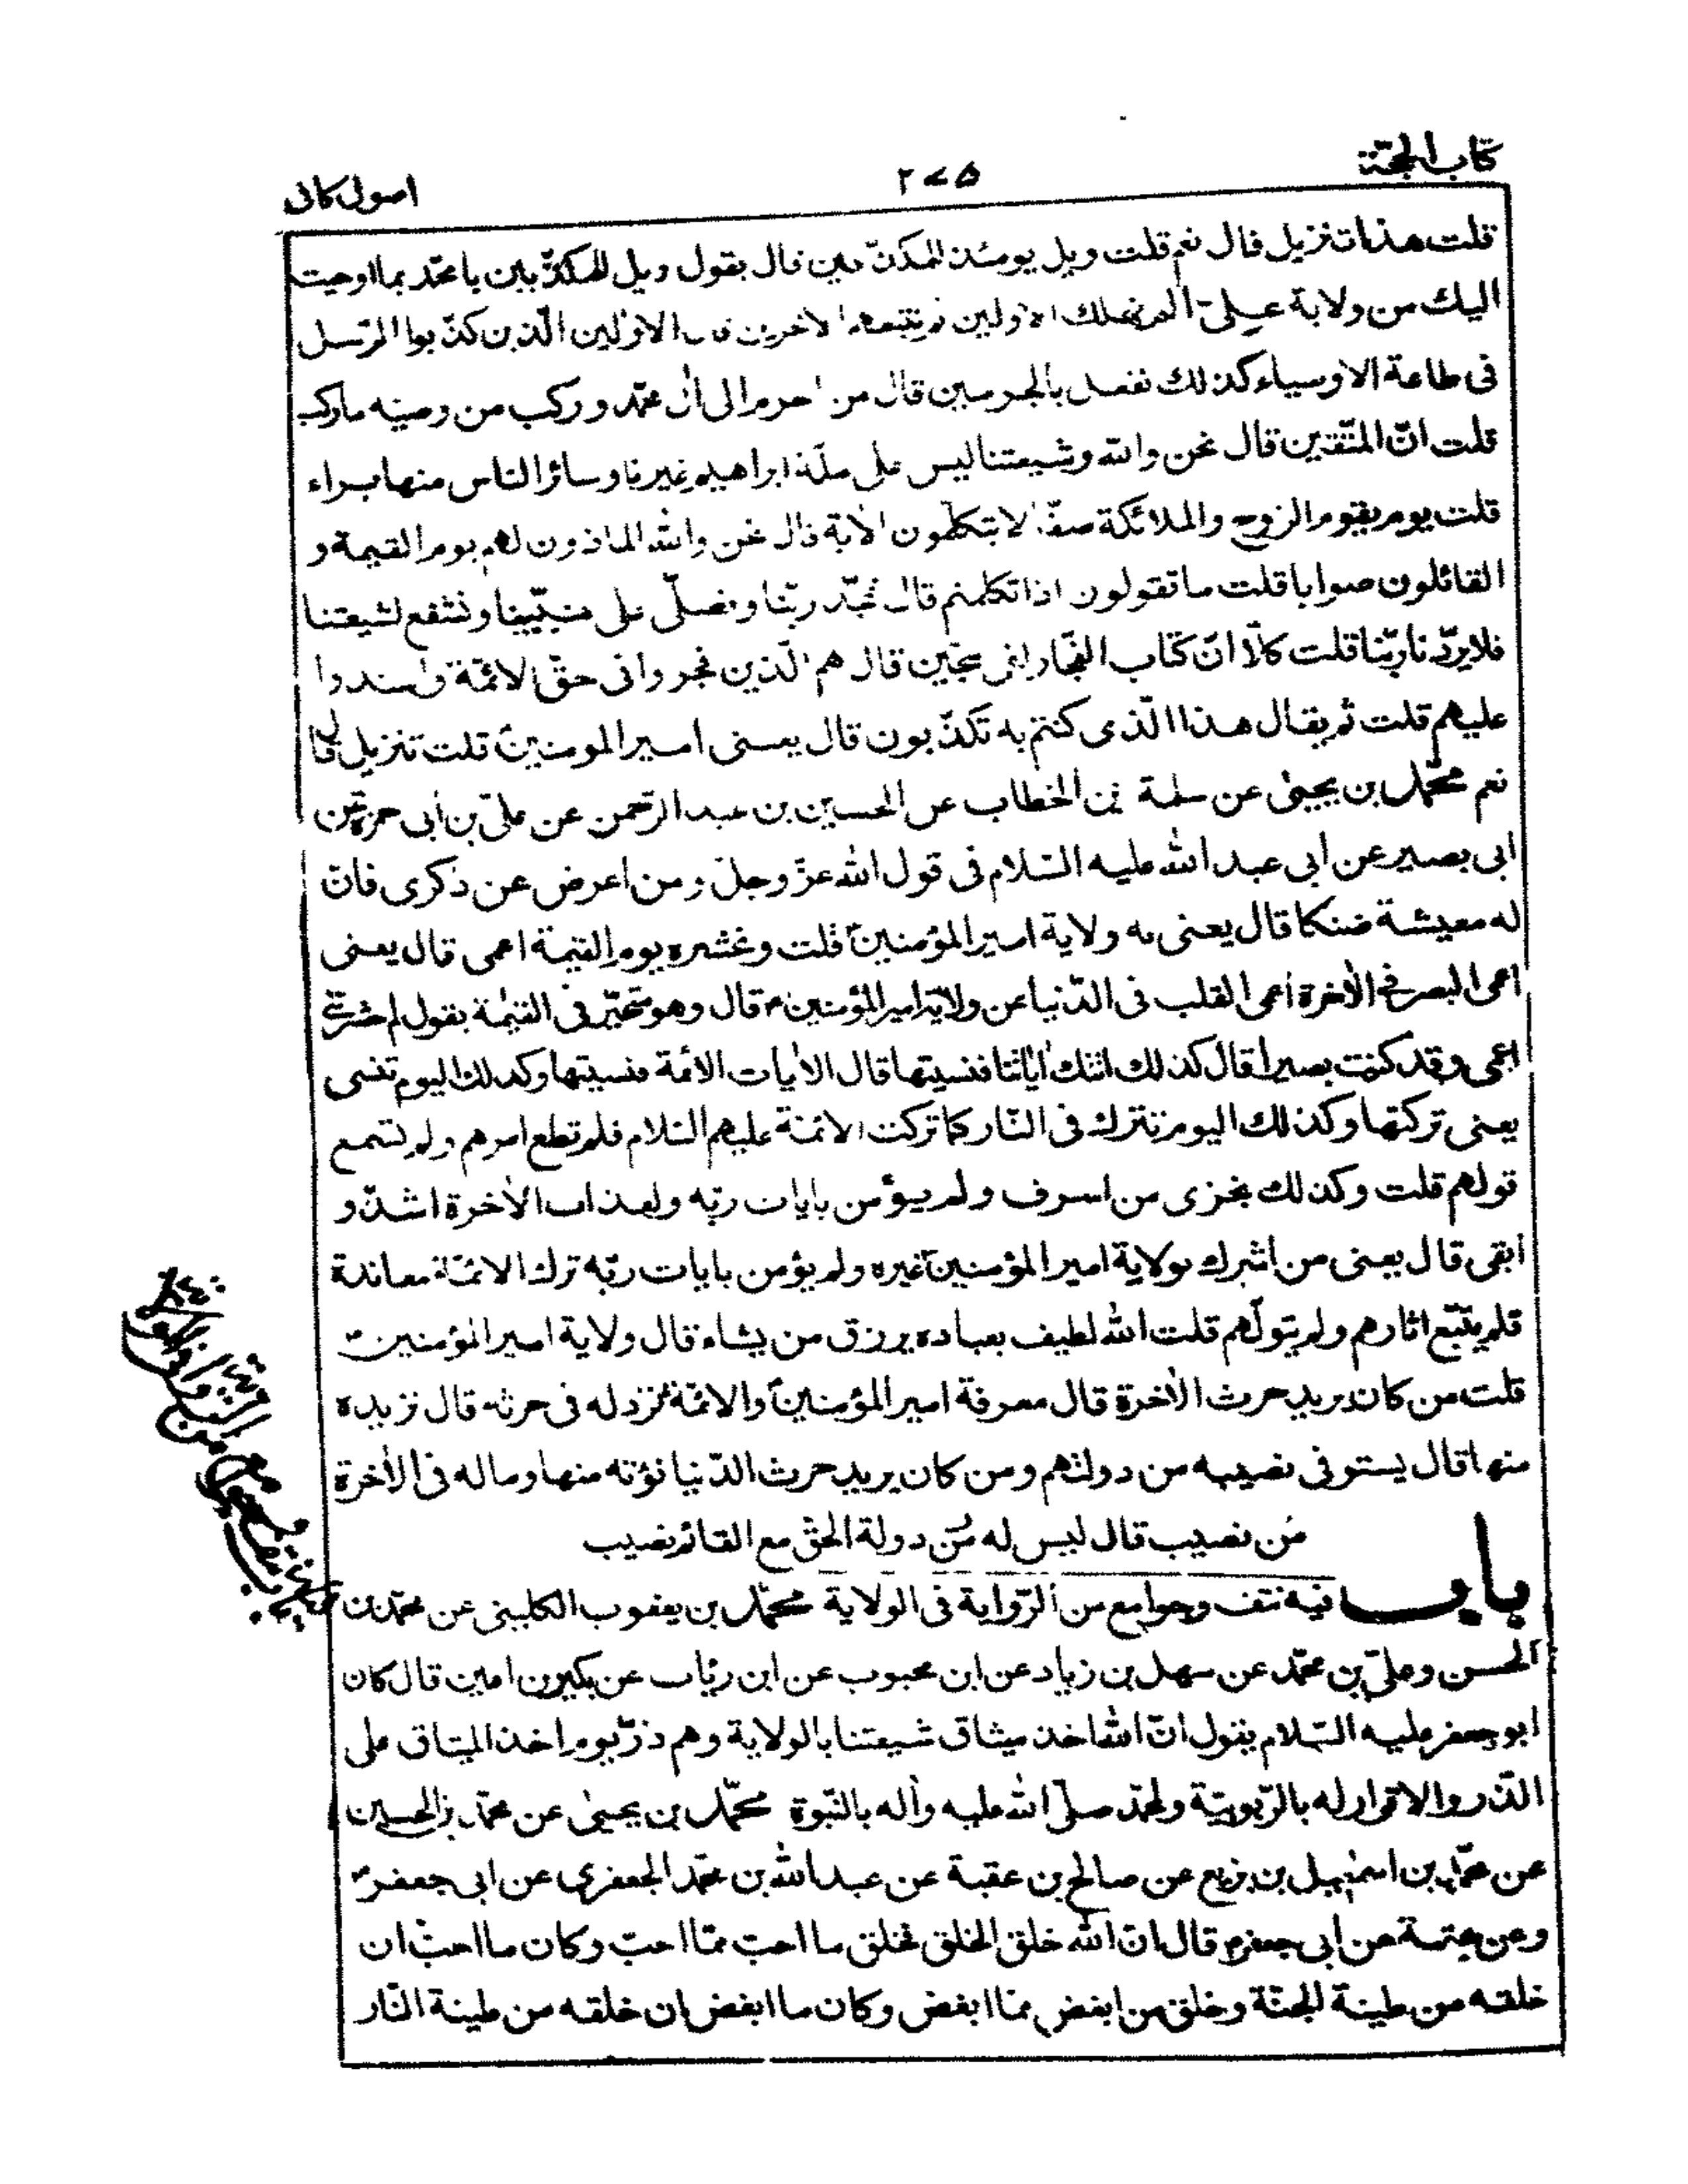 كتاب الحجّة
٢٧٥
اصول كافى
قلت هذا تنزيل قال نعم قلت ويل يومئذ للمكذّبين قال يقول ويل للمكذّبين يا محمّد بما اوحيت
اليك من ولاية علىّ الم نهلك الاولين ثم نتبعهم الاخرين قال الاوّلين الّذين كذّبوا الرّسل
فى طاعة الاوصياء كذلك نفعل بالمجرمين قال من اجرم الى آل محمّد وركب من وصيّه ماركب
قلت انّ المتّقين قال نحن والله وشيعتنا ليس على ملّة ابراهيم غيرنا وسائر الناس منها براء
قلت يوم يقوم الروح والملائكة صفّا لا يتكلمون الاية قال نحن والله الماذون لهم يوم القيمة و
القائلون صوابا قلت ما تقولون اذا تكلمتم قال نمجّد ربّنا ونصلّى على نبيّنا ونشفع لشيعتنا
فلا يردّنا ربّنا قلت كلّا انّ كتاب الفجّار لفى سجّين قال هم الّذين فجروا فى حقّ الائمّة واعتدوا
عليهم قلت ثم يقال هذا الّذى كنتم به تكذّبون قال يعنى امير المومنين قلت تنزيل قال
نعم محمّد بن يحيى عن سلمة بن الخطاب عن الحسين بن عبد الرّحمن عن علىّ بن ابى حمزة عن
ابى بصير عن ابى عبد الله عليه السّلام فى قول الله عزّ وجلّ ومن اعرض عن ذكرى فانّ
له معيشة ضنكا قال يعنى به ولاية امير المؤمنين قلت ونحشره يوم القيمة اعمى قال يعنى
اعمى البصر فى الاخرة اعمى القلب فى الدّنيا عن ولاية امير المؤمنين ع قال وهو متحيّر فى القيٰمة يقول لم حشرتنى
اعمى وقد كنت بصيرا قال كذلك اتتك اٰياتنا فنسيتها قال الاٰيات الائمة فنسيتها وكذلك اليوم تنسى
يعنى تركتها وكذلك اليوم تترك فى النّار كما تركت الائمة عليهم السّلام فلم تطع امرهم ولم تستمع
قولهم قلت وكذلك نجزى من اسرف ولم يؤمن بايات ربّه ولعذاب الاٰخرة اشدّ و
ابقى قال يعنى من اشرك بولاية امير المؤمنين غيره ولم يؤمن بايات ربّه ترك الائمّة معاندة
فلم يتّبع اثارهم ولم يتولّهم قلت الله لطيف بعباده يرزق من يشاء قال ولاية امير المؤمنين ع
قلت من كان يريد حرث الاٰخرة قال معرفة امير المؤمنين والائمّة نزد له فى حرثه قال نزيده
منها قال يستوفى نصيبه من دولتهم ومن كان يريد حرث الدّنيا نؤته منها وماله فى الاٰخرة
من نصيب قال ليس له من دولة الحقّ مع القائم نصيب
باب فيه نتف وجوامع من الرّواية فى الولاية محمّد بن يعقوب الكلينى عن محمّد بن
الحسن وعلىّ بن محمّد عن سهل بن زياد عن ابن محبوب عن ابن رئاب عن بكير بن اعين قال كان
ابو جعفر عليه السّلام يقول انّ الله اخذ ميثاق شيعتنا بالولاية وهم ذرّ يوم اخذ الميثاق على
الذّر والاقرار له بالرّبوبيّة ولمحمّد صلّى الله عليه واٰله بالنّبوة محمّد بن يحيىٰ عن محمّد بن الحسين
عن محمّد بن اسمٰعيل بن بزيع عن صالح بن عقبة عن عبد الله بن محمّد الجعفرى عن ابى جعفر ع
وعن عقبة عن ابى جعفر ع قال انّ الله خلق الخلق فخلق ما احب ممّا احبّ وكان ما احبّ ان
خلقه من طينة الجنّة وخلق من ابغض ممّا ابغض وكان ما ابغض ان خلقه من طينة النّار